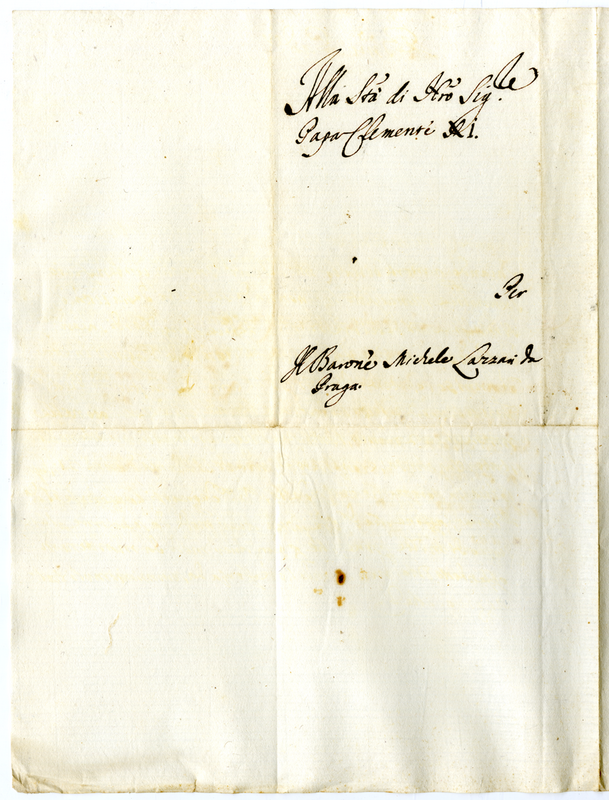 Alla Stà di Nrō Sigre
Papa Clementi XI.
Per
Il Barone Michele Lazzari da
Praga.